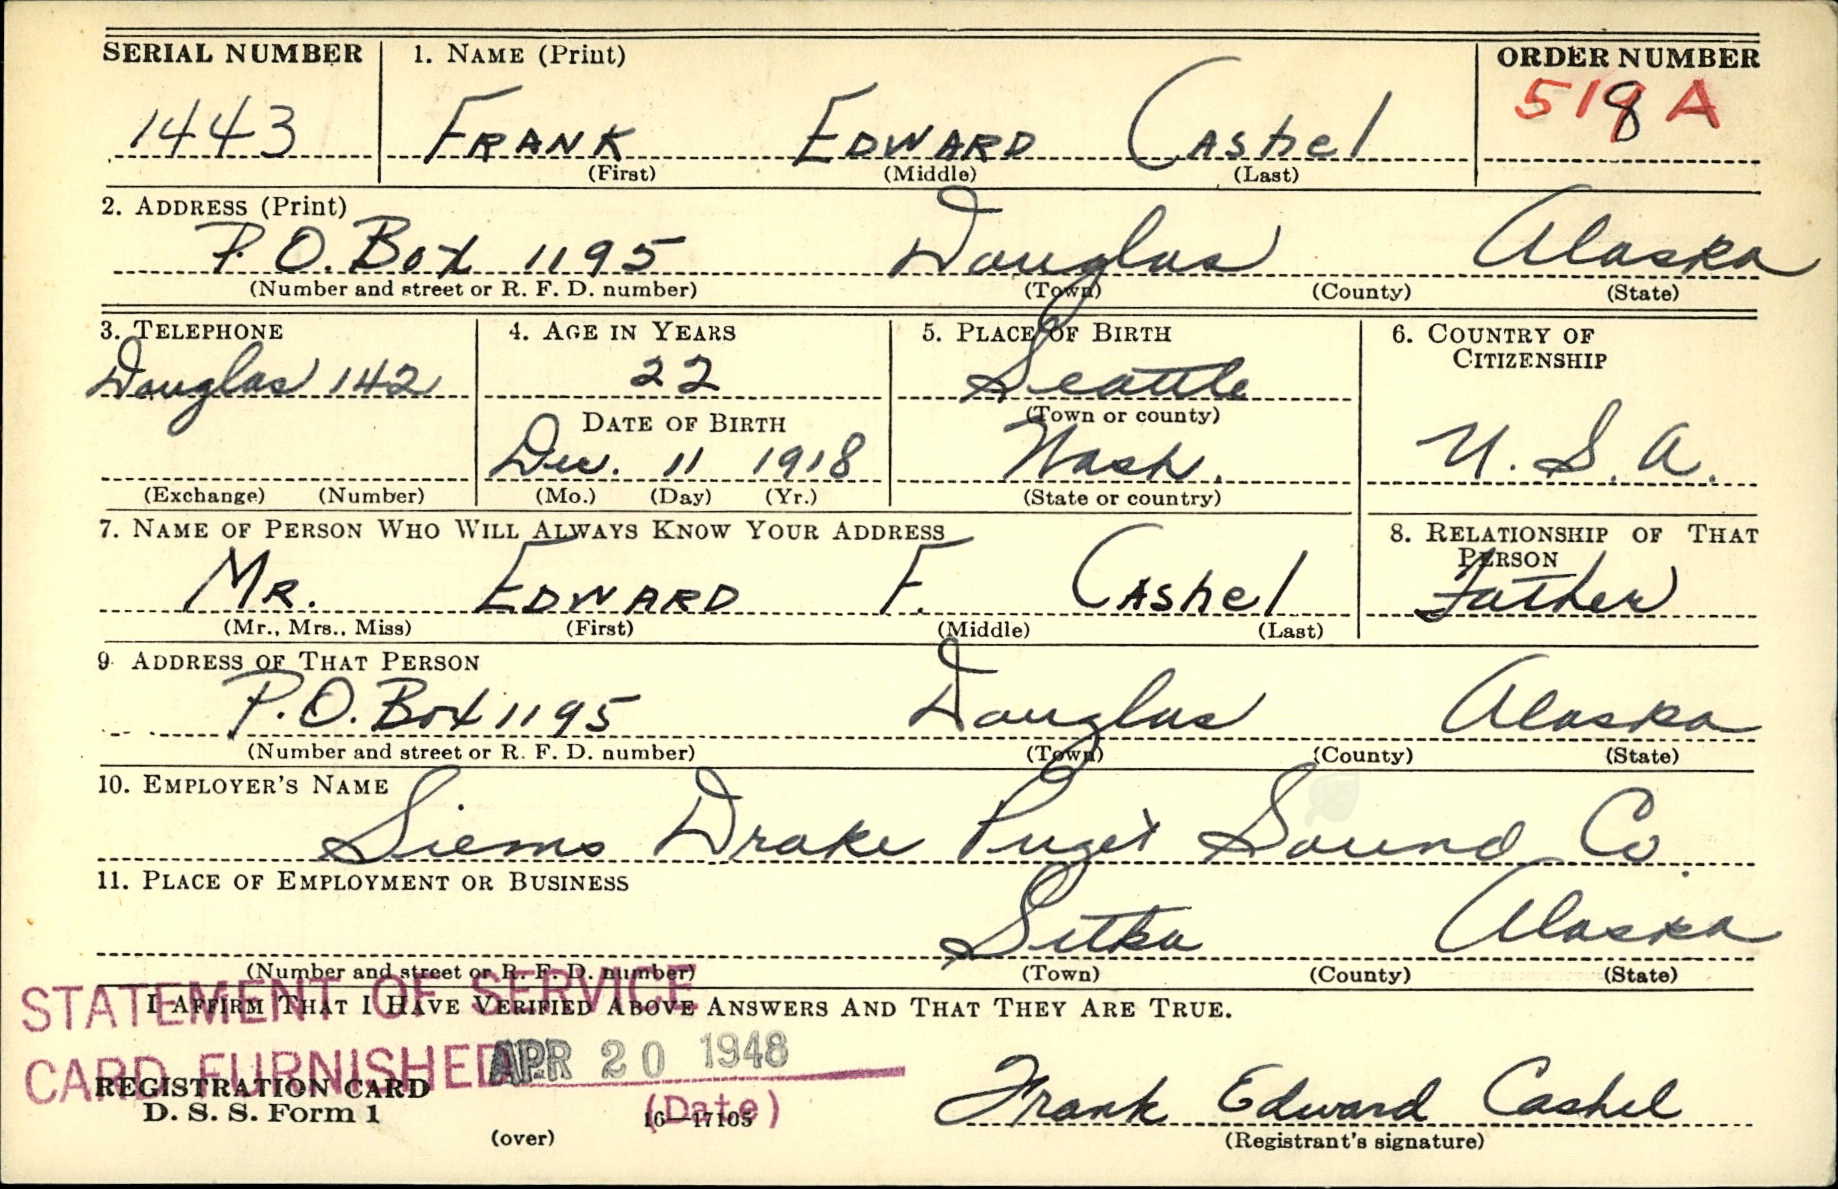 SERIAL NUMBER 1. NAME (Print) ORDER NUMBER
1443 FRANK EDWARD CASHEL 518 A
(First) (Middle) (Last)
2. ADDRESS (Print)
P.O. Box 1195 Douglas Alaska
(Number and street or R. F. D. number) (Town) (County) (State)
3. TELEPHONE 4. AGE IN YEARS 5. PLACE OF BIRTH 6. COUNTRY OF CITIZENSHIP
Douglas 142 22 Seattle
DATE OF BIRTH (Town or county)
Dec. 11 1918 Wash. U.S.A.
(Exchange) (Number) (Mo.) (Day) (Yr.) (State or country)
7. NAME OF PERSON WHO WILL ALWAYS KNOW YOUR ADDRESS 8. RELATIONSHIP OF THAT PERSON
MR. EDWARD F. CASHEL Father
(Mr., Mrs., Miss) (First) (Middle) (Last)
9. ADDRESS OF THAT PERSON
P.O. Box 1195 Douglas Alaska
(Number and street or R. F. D. number) (Town) (County) (State)
10. EMPLOYER'S NAME
Siems Drake Puget Sound Co.
11. PLACE OF EMPLOYMENT OR BUSINESS
Sitka Alaska
(Number and street or R. F. D. number) (Town) (County) (State)
STATEMENT OF SERVICE
I AFFIRM THAT I HAVE VERIFIED ABOVE ANSWERS AND THAT THEY ARE TRUE.
CARD FURNISHED APR 20 1948
(Date)
REGISTRATION CARD
D. S. S. Form 1 16—17105 Frank Edward Cashel
(over) (Registrant's signature)